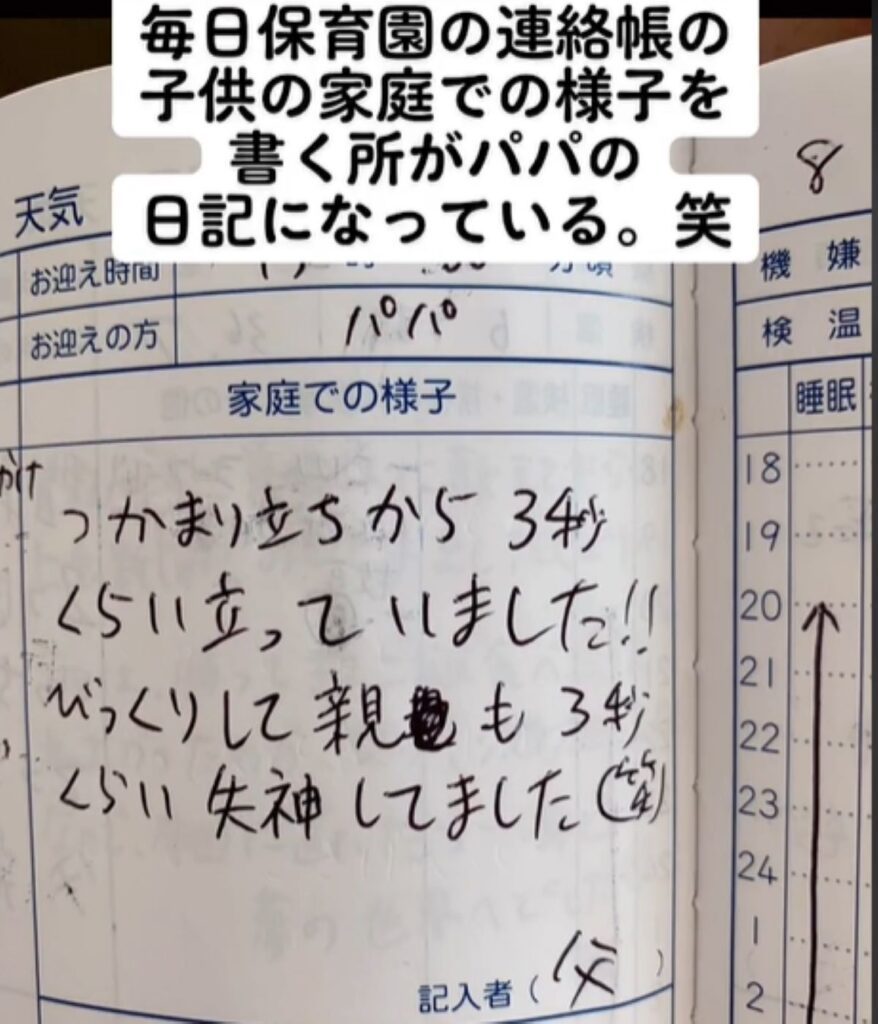 毎日保育園の連絡帳の
子供の家庭での様子を
書く所がパパの
日記になっている。笑
8
天気
お迎え時間
お迎えの方 パパ
家庭での様子
つかまり立ちから 3秒
くらい立っていました!!
びっくりして親も3秒
くらい失神してました(笑)
記入者(父)
機嫌
検温
睡眠
18
19
20
21
22
23
24
1
2